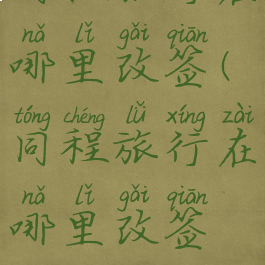 nǎ lǐ gǎi qiān
哪里改签(
tóng chéng lǚ xíng zài
同程旅行在
nǎ lǐ gǎi qiān
哪里改签